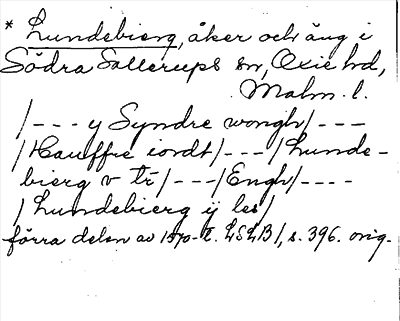 * Lundebierg, åker och äng i
Södra Sallerups sn, Oxie hd,
Malm. l.
/--- y Syndre wongh/---
/Hauffre iordt/---/Lunde-
bierg v tr/---/Engh/----
/Lundebierg ij les/
förra delen av 1570-t. LSLB/, s. 396. orig.